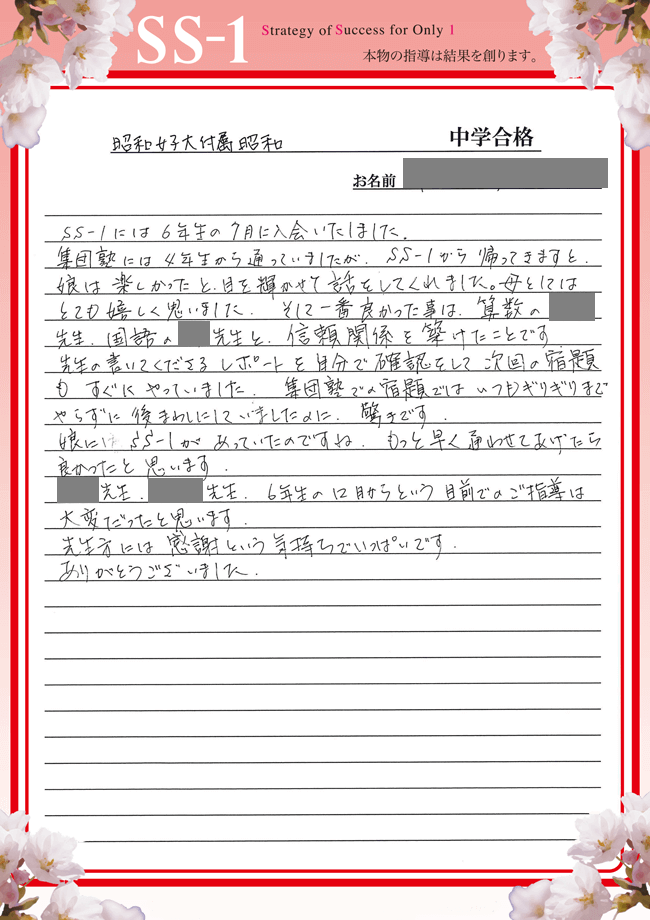 SS-1
Strategy of Success for Only 1
本物の指導は結果を創ります。
昭和女子大付属昭和 中学合格
お名前
SS-1には6年生の7月に入会いたしました.
集団塾には4年生から通っていましたが. SS-1から帰ってきますと.
娘は楽しかったと、目を輝かせて話をしてくれました。母としては
とても嬉しく思いました. そして一番良かった事は. 算数の
先生. 国語の 先生と. 信頼関係を築けたことです
先生の書いてくださるレポートを自分で確認をして次回の宿題
も すぐに やっていました. 集団塾での宿題では いつもぎりぎりまで
やらずに 後まわしにしていましたのに. 驚きです.
娘には SS-1が あっていたのですね. もっと早く通わせてあげたら
良かったと 思います.
先生. 先生. 6年生の12月からという 目前でのご指導は
大変だったと思います.
先生方には 感謝という気持ちでいっぱいです.
ありがとうございました.